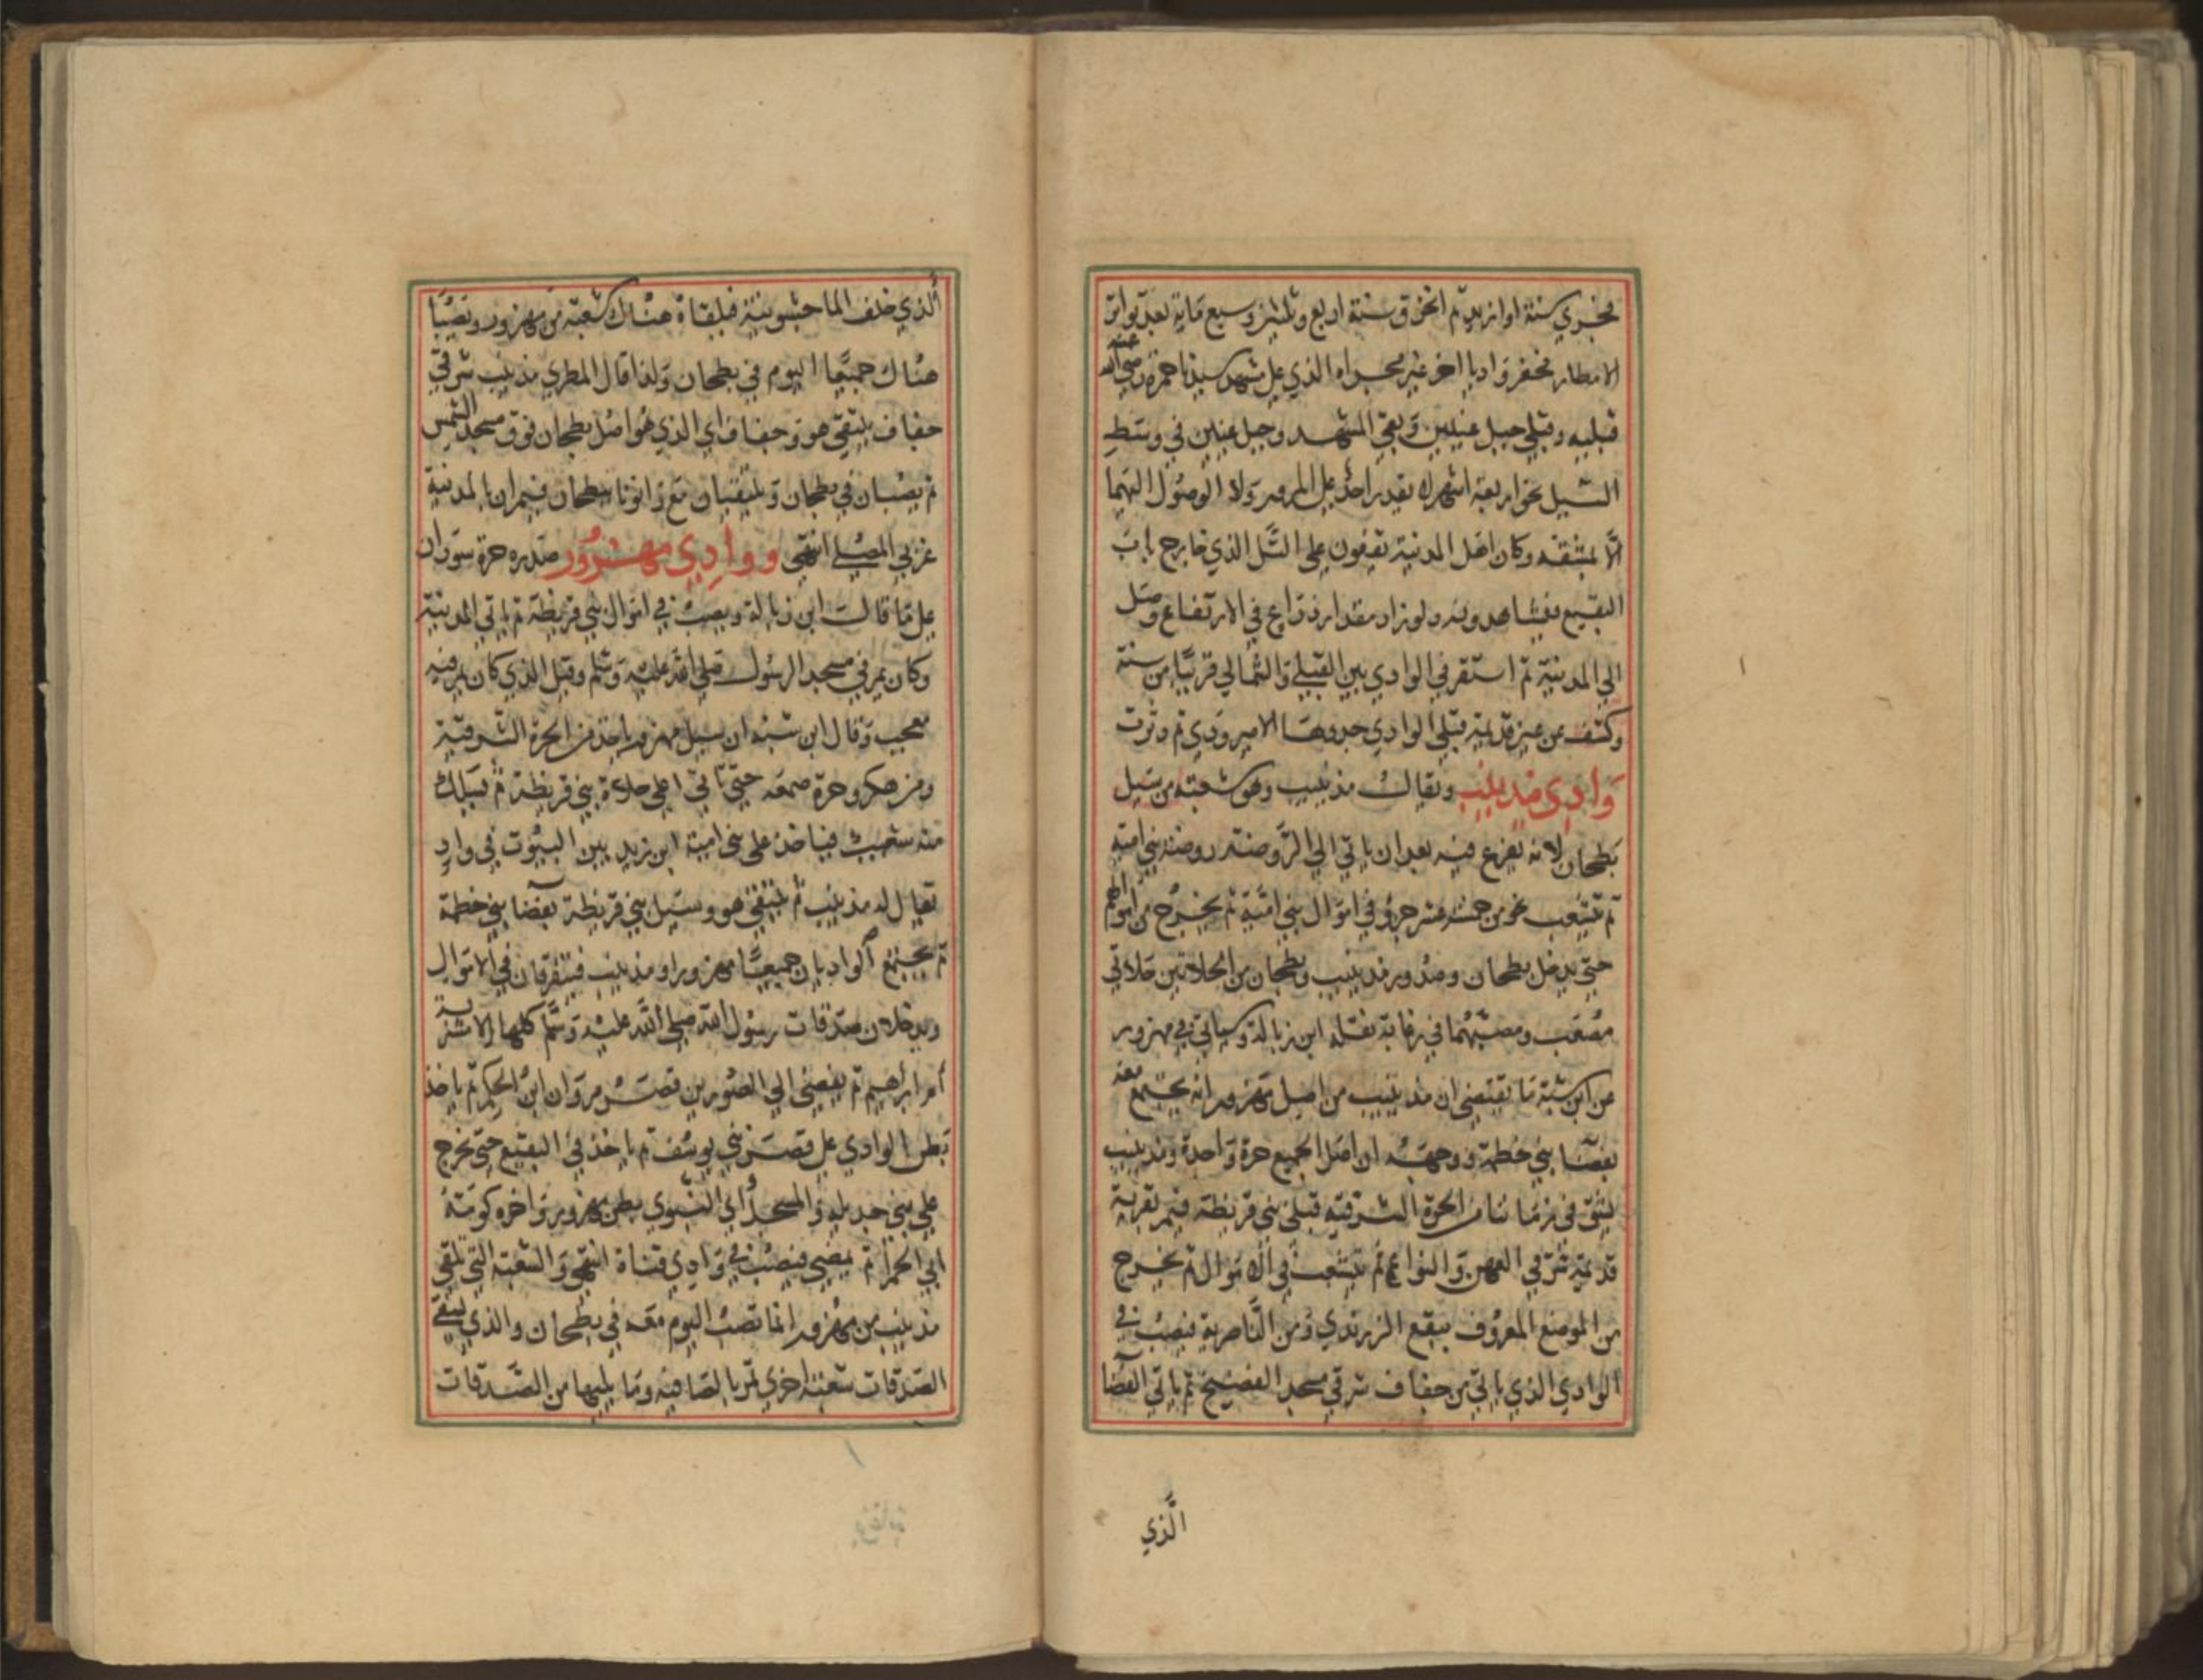 فجري سنة او ازيد ثم انخرق سنة اربع وثلثين وسبع ماية بعد تواتر
الامطار فحفر واديا اخر غير مجراه الذي على مشهد سيدنا حمزة رضي الله عنه
قبليه وقبلي جبل عينين وبقي المشهد وجبل عينين في وسط
السيل نحو اربعة اشهر لا يقدر احد على المرور ولا الوصول اليهما
الا بمشقة وكان اهل المدينة يقفون على التل الذي خارج باب
البقيع فيشاهدونه ولو زاد مقدار ذراع في الارتفاع وصل
الي المدينة ثم استقر في الوادي بين القبلي والشمالي قريبا من سنة
وكشف عن عين قديمة قبلي الوادي جددها الامير ودي ثم دثرت
وادي مذينيب ويقال مذينيب وهو شعبة من سيل
بطحان لانه يفزع فيه بعد ان ياتي الي الروضة روضة بني امية
ثم يتشعب نحو من خمسة عشر جزؤ في اموال بني امية ثم يخرج من اموالهم
حتى يدخل بطحان وصدور مذينيب وبطحان من الحلاتين حلاتي
مصعب ومصبهما في زغابة نقله ابن زبالة وسياتي في مهزور
عن ابن شبة ما يقتضي ان مذينيب من اصل مهزور انه يجتمع معه
بفضا بني خطمة ووجهه ان اصل الجميع حرة واحدة ومذينيب
يشق في زماننا من الحرة الشرقية قبلي بني قريظة فيمر بقرية
قديمة شرقي العهن والنواعم ثم يتشعب في الاموال ثم يخرج
من الموضع المعروف ببقع الزبرندي ومن الناصرية فيصب في
الوادي الذي ياتي من جفاف شرقي مسجد الفضيخ ثم ياتي الفضا
الذي
الذي خلف الماجشونية فيلقاه هناك شعبة من مهزور ويصبا
هناك جميعا اليوم في بطحان ولذا قال المطري مذينيب شرقي
جفاف يلتقي هو وجفاف اي الذي هو اصل بطحان فوق مسجد الشمس
ثم يصبان في بطحان ويلتقيان مع رانونا ببطحان فيمران بالمدينة
غربي المصلى انتهى ووادي مهزور صدره حرة سوران
على ما قالت ابن زبالة ويصب في اموال بني قريظة ثم ياتي المدينة
وكان يمر في مسجد الرسول صلى الله عليه وسلم وقيل الذي كان يمر فيه
معجب وقال ابن شبه ان سيل مهزور ياخذ من الحرة الشرقية
ومن هكر وحرة صمعه حتى ياتي اعلى حلاة بني قريظة ثم يسلك
منه شعيب فياخذ على بني امية ابن زيد بين البيوت في واد
يقال له مذينيب ثم يلتقي هو وسيل بني قريظة بفضا بني خطمة
ثم يجتمع الواديان جميعا مهزور ومذينيب فيتفرقان في الاموال
ويدخلان صدقات رسول الله صلى الله عليه وسلم كلها الا مشربة
ام ابراهيم ثم يفضي الي الصورين قصر مروان ابن الحكم ثم ياخذ
بطن الوادي على قصر بني يوسف ثم ياخذ في البقيع حتى يخرج
على بني حديله والمسجد اي النبوي ببطن مهزور واخره كومة
ابي الحمرا ثم يمضي فيصب في وادي قناة انتهى والشعبة التي تلقي
مذينيب من مهزور انما تصب اليوم معه في بطحان والذي يسقي
الصدقات شعبة اخري تمر بالصافيه وما يليها من الصدقات